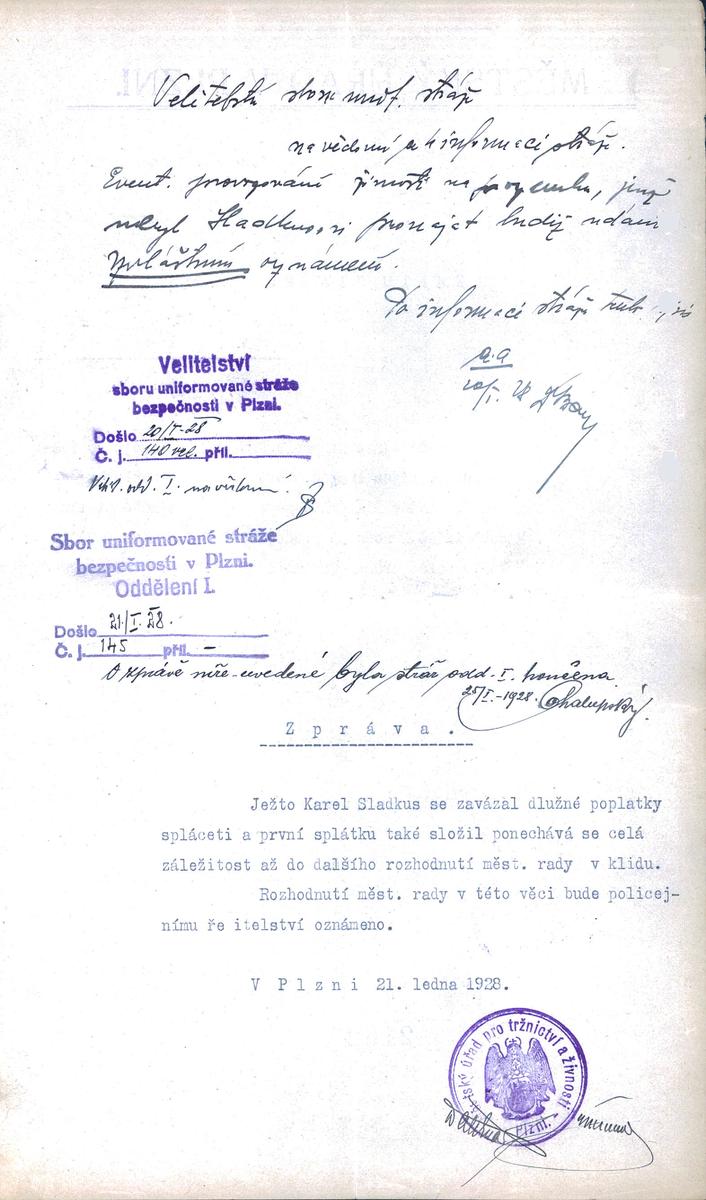 Velitelství sboru unif. stráže
na vědomí a k informaci stráže.
Event. provozování živnosti na pozemku, jenž
nebyl Sladkusovi pronajat budiž udáno
zvláštním oznámení.
Do informací stráže
a.a
20/I. 28
Velitelství
sboru uniformované stráže
bezpečnosti v Plzni.
Došlo 20/I-28
Č. j. 140 vel. příl.
Velit. odd. I. na vědomí.
Sbor uniformované stráže
bezpečnosti v Plzni.
Oddělení I.
Došlo 21./I. 28.
Č. j. 145 příl. –
O zprávě níže uvedené byla stráž odd. I. poučena.
25/I.-1928. Chalupský
Zpráva.
Ježto Karel Sladkus se zavázal dlužné poplatky
spláceti a první splátku také složil ponechává se celá
záležitost až do dalšího rozhodnutí měst. rady v klidu.
Rozhodnutí měst. rady v této věci bude policej-
nímu ře itelství oznámeno.
V Plzni 21. ledna 1928.
úřad pro tržnictví a živnosti
Plzni.